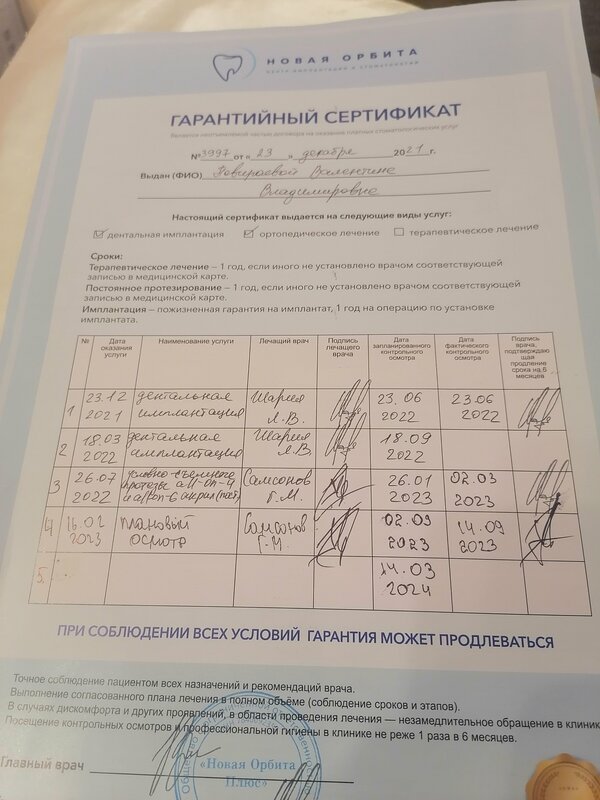 НОВАЯ ОРБИТА
ЦЕНТР ИМПЛАНТАЦИИ И СТОМАТОЛОГИИ
ГАРАНТИЙНЫЙ СЕРТИФИКАТ
Является неотъемлемой частью договора на оказание платных стоматологических услуг
№3997 от «23» декабря 2021 г.
Выдан (ФИО) Валентине
Владимировне
Настоящий сертификат выдается на следующие виды услуг:
дентальная имплантация ортопедическое лечение терапевтическое лечение
Сроки:
Терапевтическое лечение – 1 год, если иного не установлено врачом соответствующей
записью в медицинской карте.
Постоянное протезирование – 1 год, если иного не установлено врачом соответствующей
записью в медицинской карте.
Имплантация – пожизненная гарантия на имплантат, 1 год на операцию по установке
имплантата.
№ Дата оказания услуги Наименование услуги Лечащий врач Подпись лечащего врача Дата запланированного контрольного осмотра Дата фактического контрольного осмотра Подпись врача, подтверждающая продление срока на 6 месяцев
1 23.12 2021 дентальная имплантация Шария Л.В. 23.06 2022 23.06 2022
2 18.03 2022 дентальная имплантация Шария Л.В. 18.09 2022
3 26.07 2022 условно-съемного протезы all-on-4 и all-on-6 акрил (пост) Самсонов Г.М. 26.01 2023 02.03 2023
4 16.02 2023 плановый осмотр Самсонов Г.М. 02.09 2023 14.09 2023
5. 14.03 2024
ПРИ СОБЛЮДЕНИИ ВСЕХ УСЛОВИЙ ГАРАНТИЯ МОЖЕТ ПРОДЛЕВАТЬСЯ
Точное соблюдение пациентом всех назначений и рекомендаций врача.
Выполнение согласованного плана лечения в полном объёме (соблюдение сроков и этапов).
В случаях дискомфорта и других проявлений, в области проведения лечения — незамедлительное обращение в клиник
Посещение контрольных осмотров и профессиональной гигиены в клинике не реже 1 раза в 6 месяцев.
Главный врач
«Новая Орбита
Плюс»